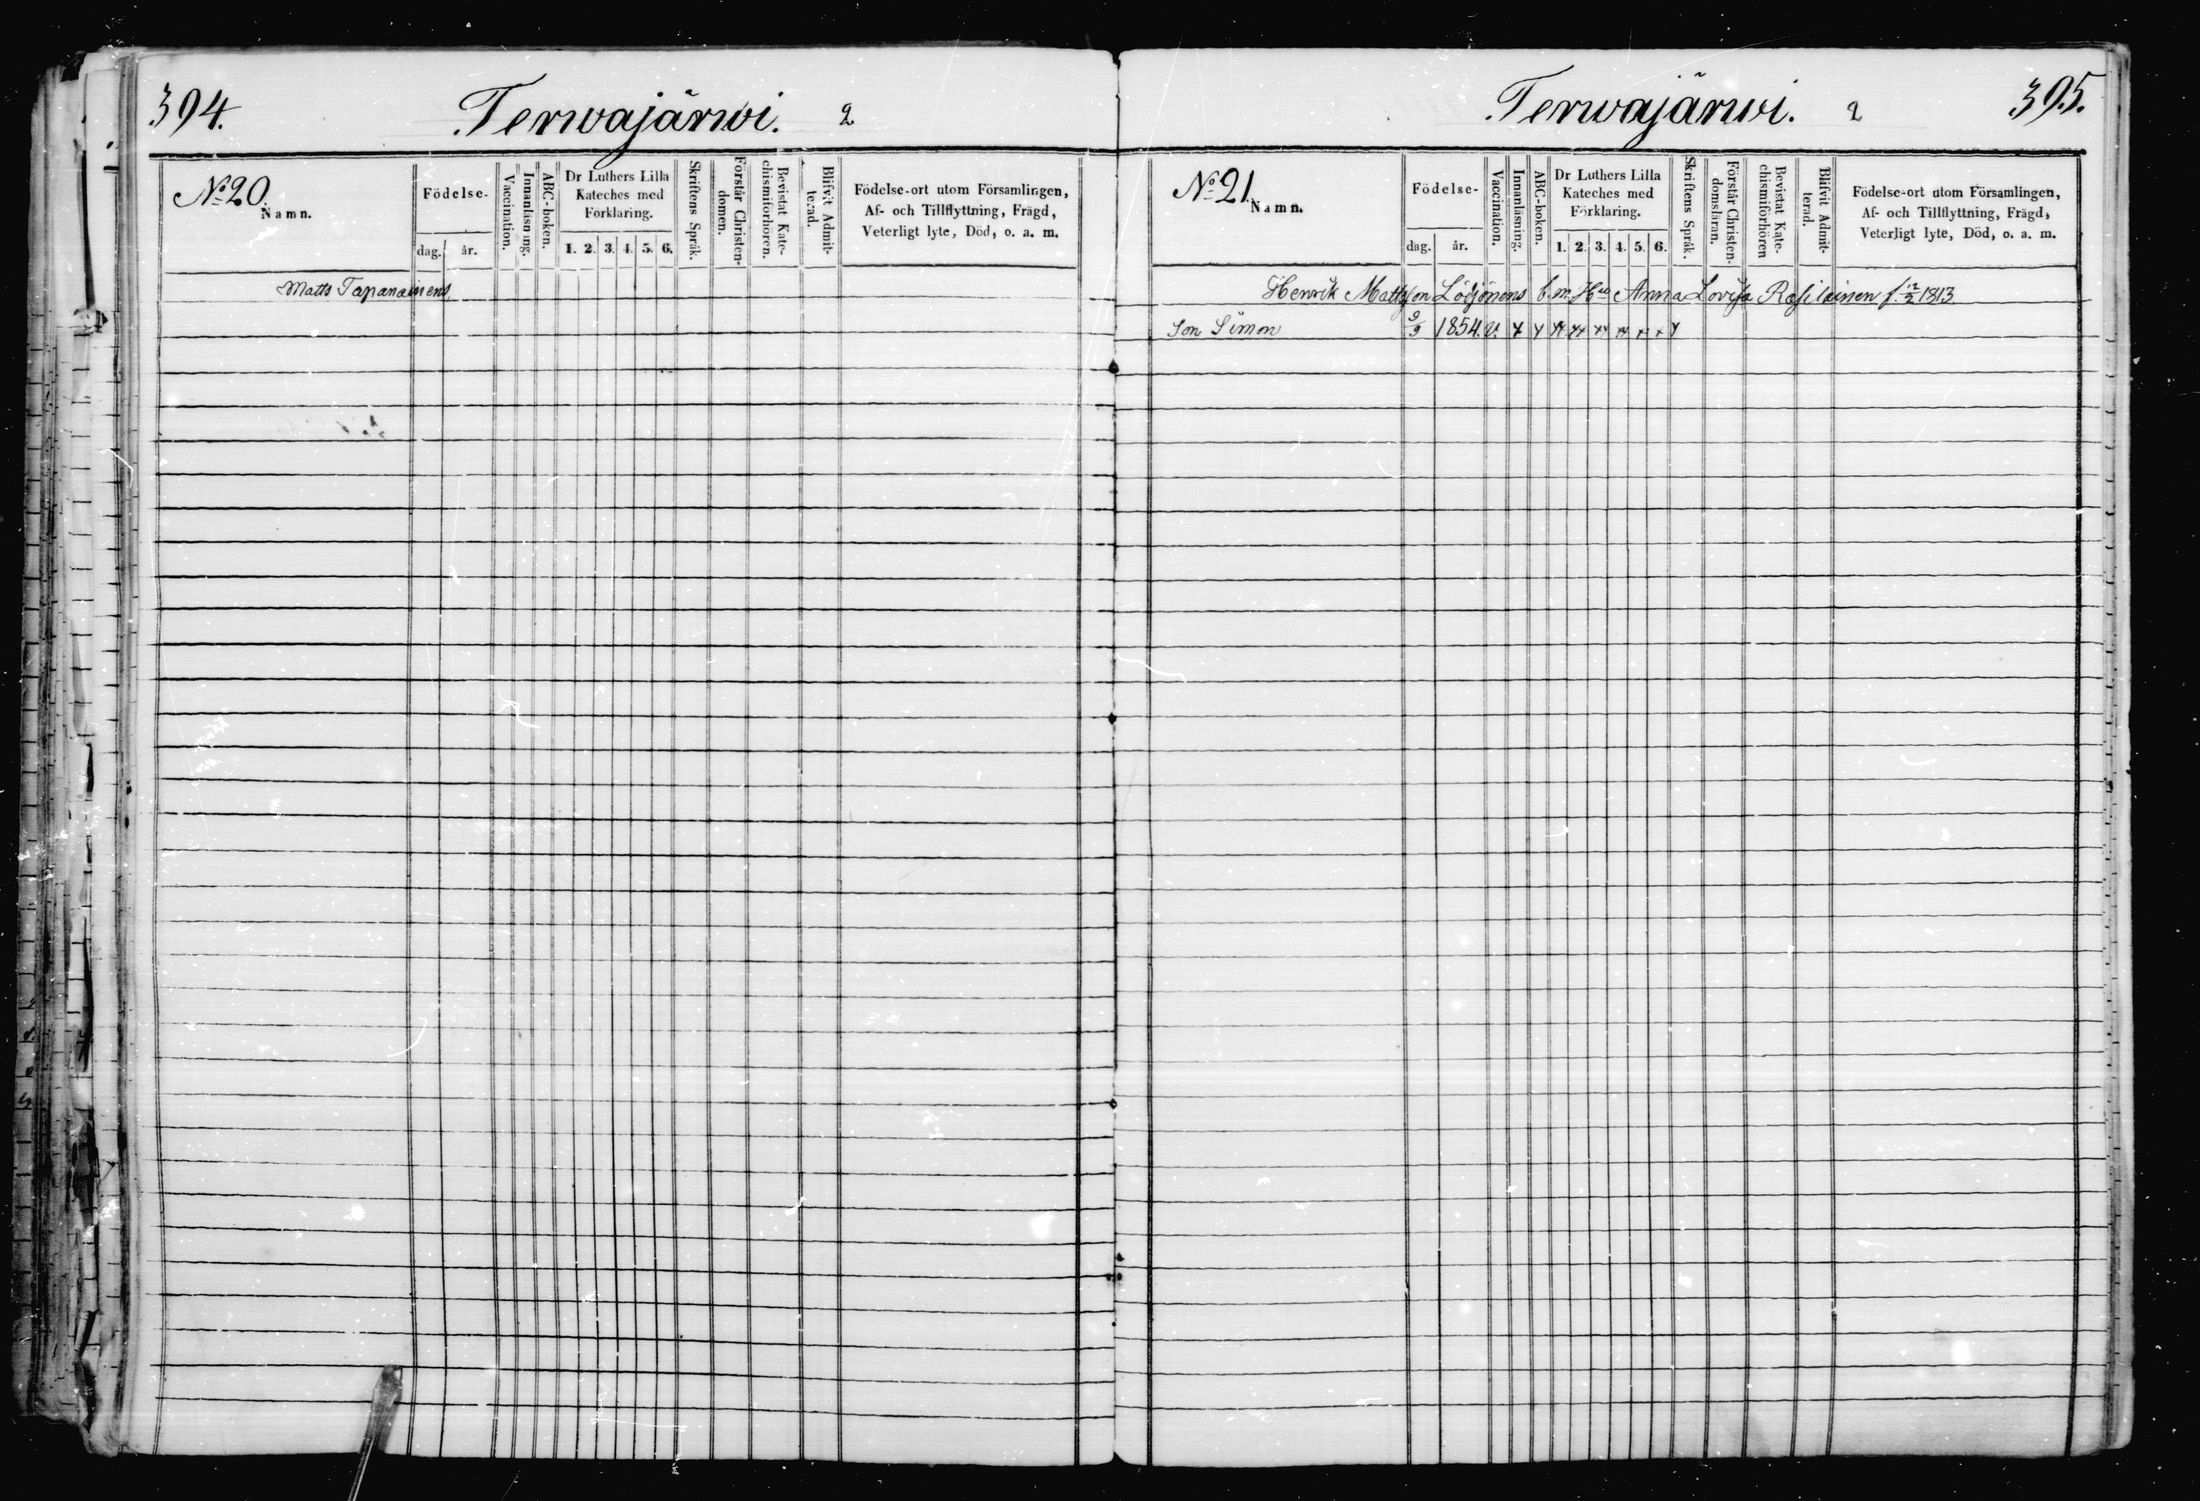 394.
Terwajärwi. 2
No 20.
Namn.
Födelse-
dag. år.
Vaccination.
Innanläsning.
ABC-boken.
Dr Luthers Lilla
Kateches med
Förklaring.
1. 2. 3. 4. 5. 6.
Skriftens Språk.
Förstår Christen-
domen.
Bevistat Kate-
chismiförhören.
Blifvit Admit-
terad.
Födelse-ort utom Församlingen,
Af- och Tillflyttning, Frägd,
Veterligt lyte, Död, o. a. m.
Matts Tapanainens
Terwajärwi. 2
395.
No 21.
Namn.
Födelse-
dag. år.
Vaccination.
Innanläsning.
ABC-boken.
Dr Luthers Lilla
Kateches med
Förklaring.
1. 2. 3. 4. 5. 6.
Skriftens Språk.
Förstår Christen-
domsläran.
Bevistat Kate-
chismiförhören
Blifvit Admit-
terad.
Födelse-ort utom Församlingen,
Af- och Tillflyttning, Frägd,
Veterligt lyte, Död, o. a. m.
Henrik Mattsson Löljönens b. m. Hu Anna Lovisa Rasilainen f. 12/2 1813
Son Simon 9/9 1854. v.